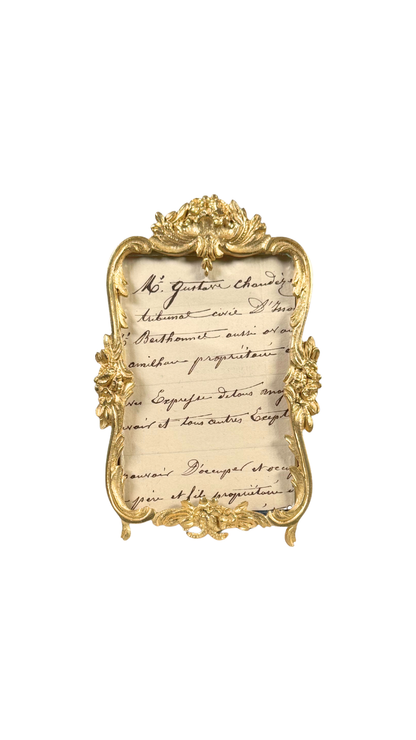 Mᵉ. Gustave Chaudez
tribunal civil D'Isso
Berthonnet aussi avou
amilhau propriétaire
Expresse de tous
voir et tous autres Except
pouvoir D'occuper et occup
père et fils propriétaire